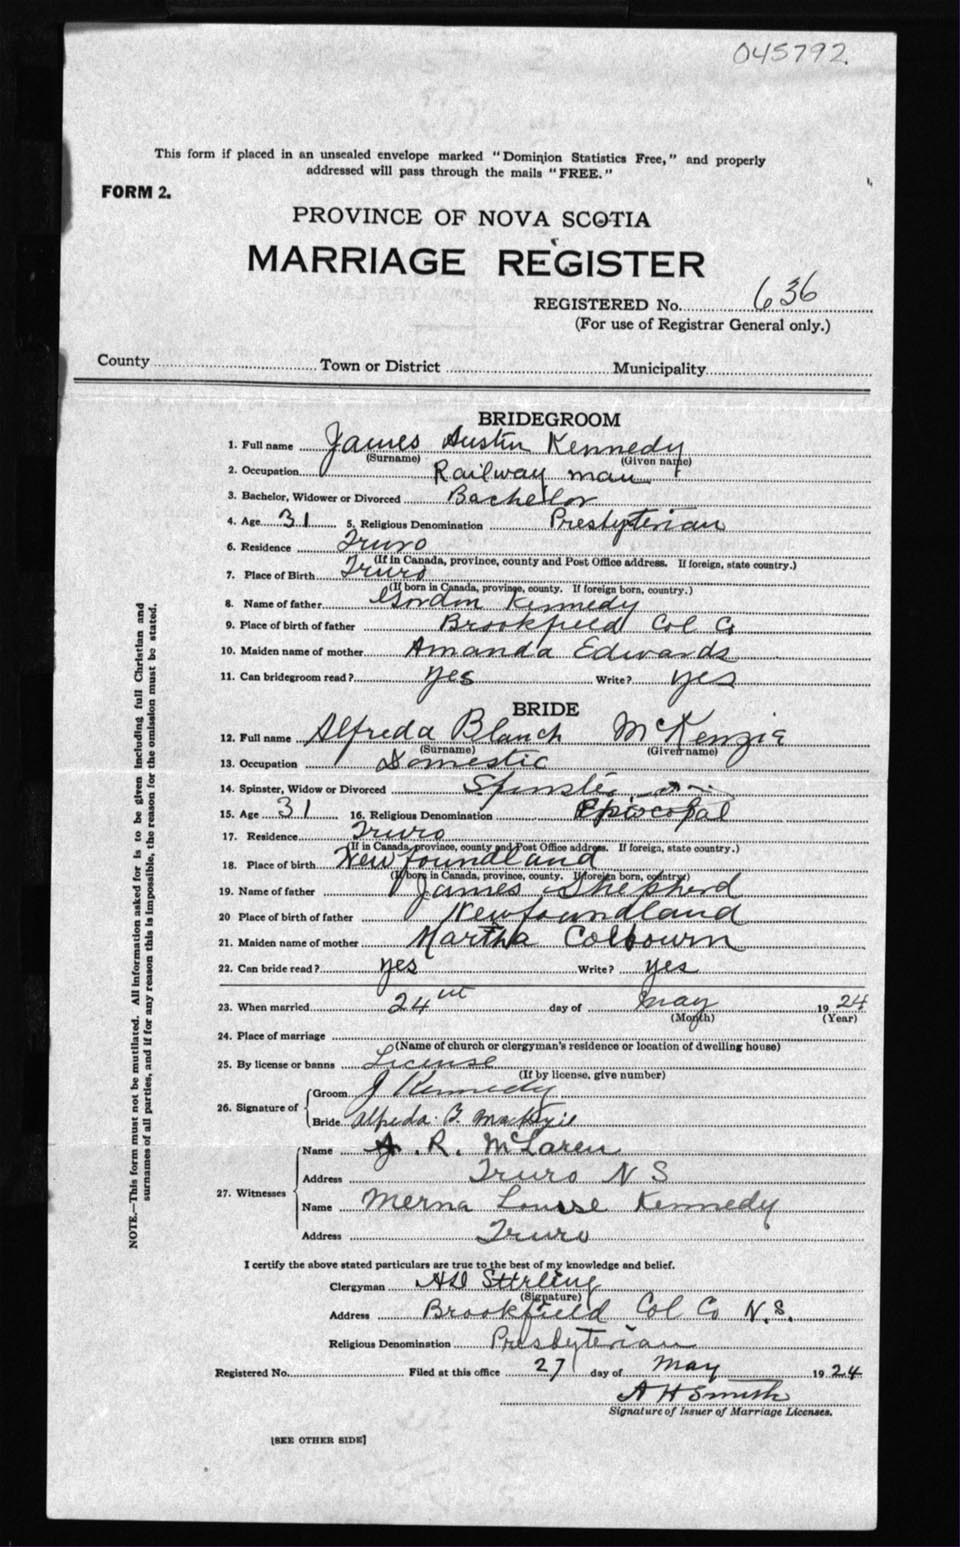 045792.
This form if placed in an unsealed envelope marked "Dominion Statistics Free," and properly
addressed will pass through the mails "FREE."
FORM 2.
PROVINCE OF NOVA SCOTIA
MARRIAGE REGISTER
REGISTERED No. 636
(For use of Registrar General only.)
County Town or District Municipality
BRIDEGROOM
1. Full name James Austin Kennedy
(Surname) (Given name)
2. Occupation Railway man
3. Bachelor, Widower or Divorced Bachelor
4. Age 31 5. Religious Denomination Presbyterian
6. Residence Truro
(If in Canada, province, county and Post Office address. If foreign, state country.)
7. Place of Birth Truro
(If born in Canada, province, county. If foreign born, country.)
8. Name of father Gordon Kennedy
9. Place of birth of father Brookfield Col Co
10. Maiden name of mother Amanda Edwards
11. Can bridegroom read? yes Write? yes
BRIDE
12. Full name Alfreda Blanch McKenzie
(Surname) (Given name)
13. Occupation Domestic
14. Spinster, Widow or Divorced Spinster
15. Age 31 16. Religious Denomination Episcopal
17. Residence Truro
(If in Canada, province, county and Post Office address. If foreign, state country.)
18. Place of birth Newfoundland
(If born in Canada, province, county. If foreign born, country)
19. Name of father James Shepherd
20 Place of birth of father Newfoundland
21. Maiden name of mother Martha Colbourn
22. Can bride read? yes Write? yes
23. When married 24th day of May 1924
(Month) (Year)
24. Place of marriage
(Name of church or clergyman's residence or location of dwelling house)
25. By license or banns License
(If by license, give number)
26. Signature of
Groom J Kennedy
Bride Alfreda B.
27. Witnesses
Name R. McLaren
Address Truro N S
Name Merna Louise Kennedy
Address Truro
I certify the above stated particulars are true to the best of my knowledge and belief.
Clergyman Stirling
(Signature)
Address Brookfield Col Co N.S.
Religious Denomination Presbyterian
Registered No. Filed at this office 27 day of May 1924
A H Smith
Signature of Issuer of Marriage Licenses.
[SEE OTHER SIDE]
NOTE.—This form must not be mutilated. All information asked for is to be given including full Christian and
surnames of all parties, and if for any reason this is impossible, the reason for the omission must be stated.